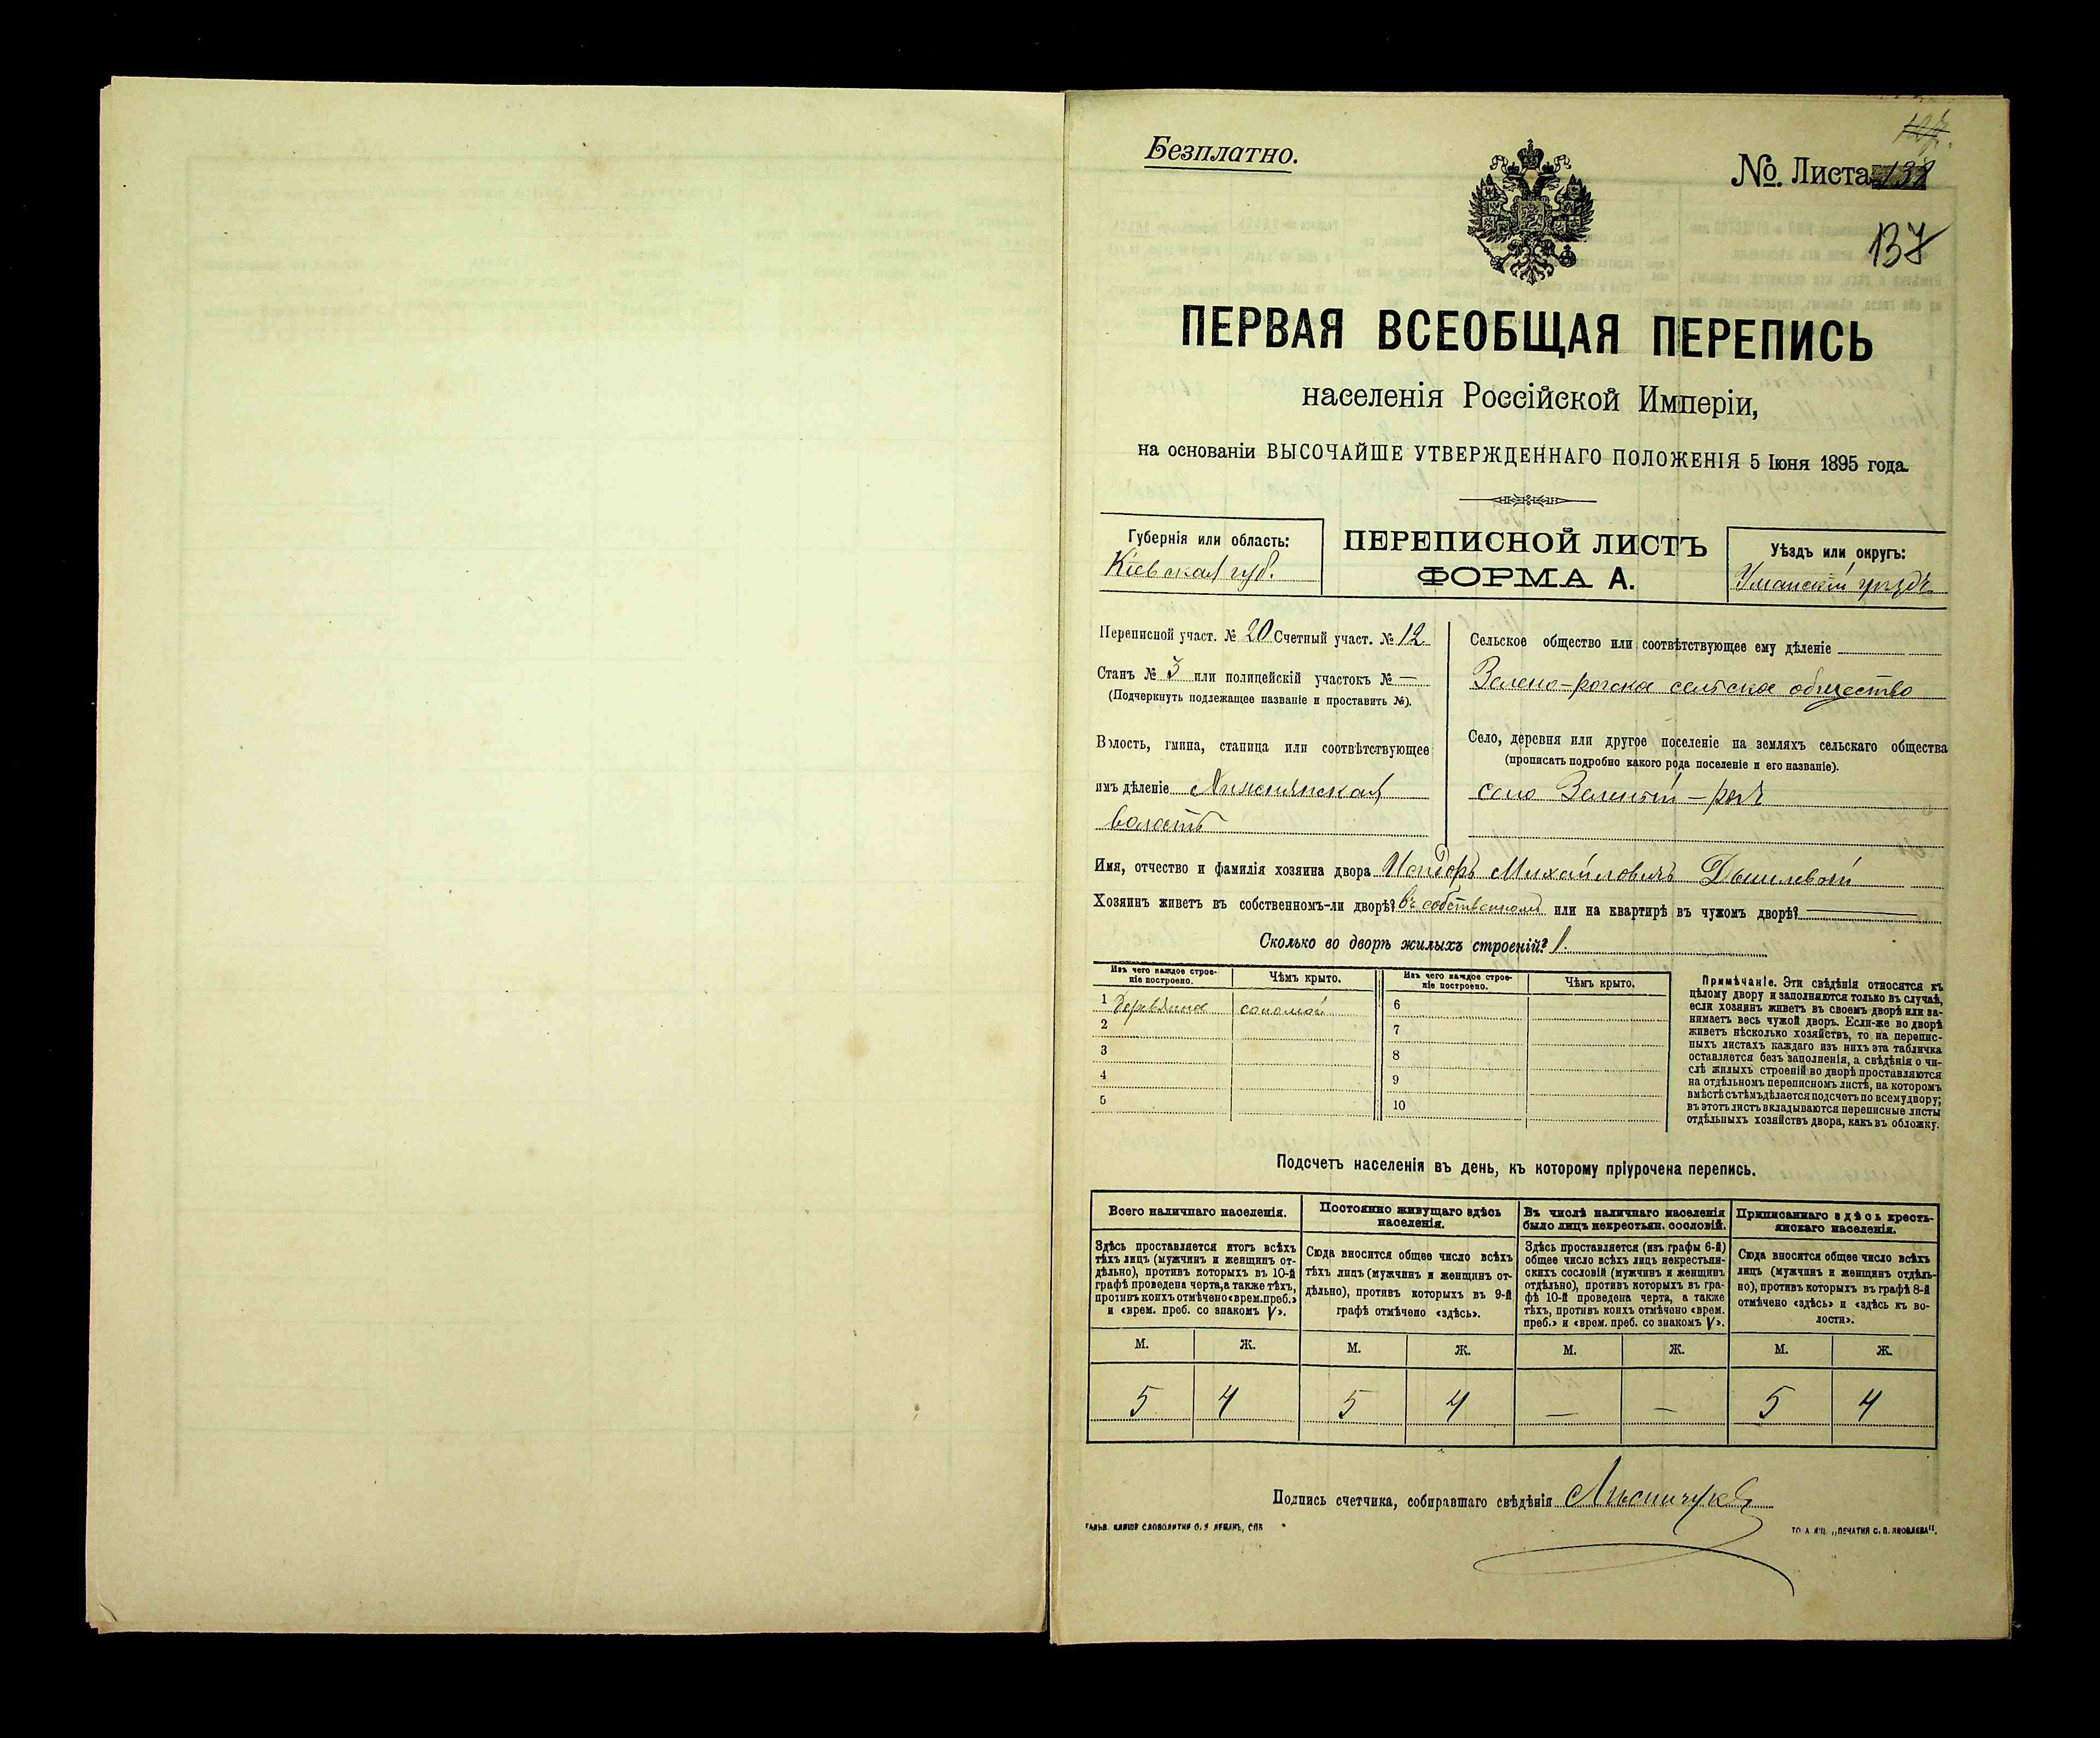 Безплатно.
№ Листа 138
137
ПЕРВАЯ ВСЕОБЩАЯ ПЕРЕПИСЬ
населенія Россійской Имперіи,
на основаніи ВЫСОЧАЙШЕ УТВЕРЖДЕННАГО ПОЛОЖЕНІЯ 5 Іюня 1895 года.
Губернія или область:
Кіевская губ.
ПЕРЕПИСНОЙ ЛИСТЪ
ФОРМА А.
Уѣздъ или округъ:
Уманскій уѣздъ
Переписной участ. № 20 Счетный участ. № 12
Станъ № 3 или полицейскій участокъ № —
(Подчеркнуть подлежащее названіе и проставить №).
Волость, гмина, станица или соотвѣтствующее
имъ дѣленіе
волость
Сельское общество или соотвѣтствующее ему дѣленіе
Зелено-рогское сельское общество
Село, деревня или другое поселеніе на земляхъ сельскаго общества
(прописать подробно какого рода поселеніе и его названіе).
село Зеленый-рогъ
Имя, отчество и фамилія хозяина двора Исидоръ Михайловичъ
Хозяинъ живетъ въ собственномъ-ли дворѣ? въ собственномъ или на квартирѣ въ чужомъ дворѣ? —
Сколько во дворѣ жилыхъ строеній? 1.
Изъ чего каждое строе-
ніе построено.
Чѣмъ крыто.
Изъ чего каждое строе-
ніе построено.
Чѣмъ крыто.
1 соломой 6
2 7
3 8
4 9
5 10
Примѣчаніе. Эти свѣдѣнія относятся къ
цѣлому двору и заполняются только въ случаѣ,
если хозяинъ живетъ въ своемъ дворѣ или за-
нимаетъ весь чужой дворъ. Если-же во дворѣ
живетъ нѣсколько хозяйствъ, то на перепис-
ныхъ листахъ каждаго изъ нихъ эта табличка
оставляется безъ заполненія, а свѣдѣнія о чи-
слѣ жилыхъ строеній во дворѣ проставляются
на отдѣльномъ переписномъ листѣ, на которомъ
вмѣстѣ съ тѣмъ дѣлается подсчетъ по всему двору;
въ этотъ листъ вкладываются переписные листы
отдѣльныхъ хозяйствъ двора, какъ въ обложку.
Подсчетъ населенія въ день, къ которому пріурочена перепись.
Всего наличнаго населенія.
Здѣсь проставляется итогъ всѣхъ
тѣхъ лицъ (мужчинъ и женщинъ от-
дѣльно), противъ которыхъ въ 10-й
графѣ проведена черта, а также тѣхъ,
противъ коихъ отмѣчено «врем. преб.»
и «врем. преб. со знакомъ V».
Постоянно живущаго здѣсь
населенія.
Сюда вносится общее число всѣхъ
тѣхъ лицъ (мужчинъ и женщинъ от-
дѣльно), противъ которыхъ въ 9-й
графѣ отмѣчено «здѣсь».
Въ числѣ наличнаго населенія
было лицъ некрестьян. сословій.
Здѣсь проставляется (изъ графы 6-й)
общее число всѣхъ лицъ некрестьян-
скихъ сословій (мужчинъ и женщинъ
отдѣльно), противъ которыхъ въ гра-
фѣ 10-й проведена черта, а также
тѣхъ, противъ коихъ отмѣчено «врем.
преб.» и «врем. преб. со знакомъ V».
Приписаннаго здѣсь кресть-
янскаго населенія.
Сюда вносится общее число всѣхъ
лицъ (мужчинъ и женщинъ отдѣль-
но), противъ которыхъ въ графѣ 8-й
отмѣчено «здѣсь» и «здѣсь къ во-
лости».
М. Ж. М. Ж. М. Ж. М. Ж.
5 4 5 4 — — 5 4
Подпись счетчика, собиравшаго свѣдѣнія